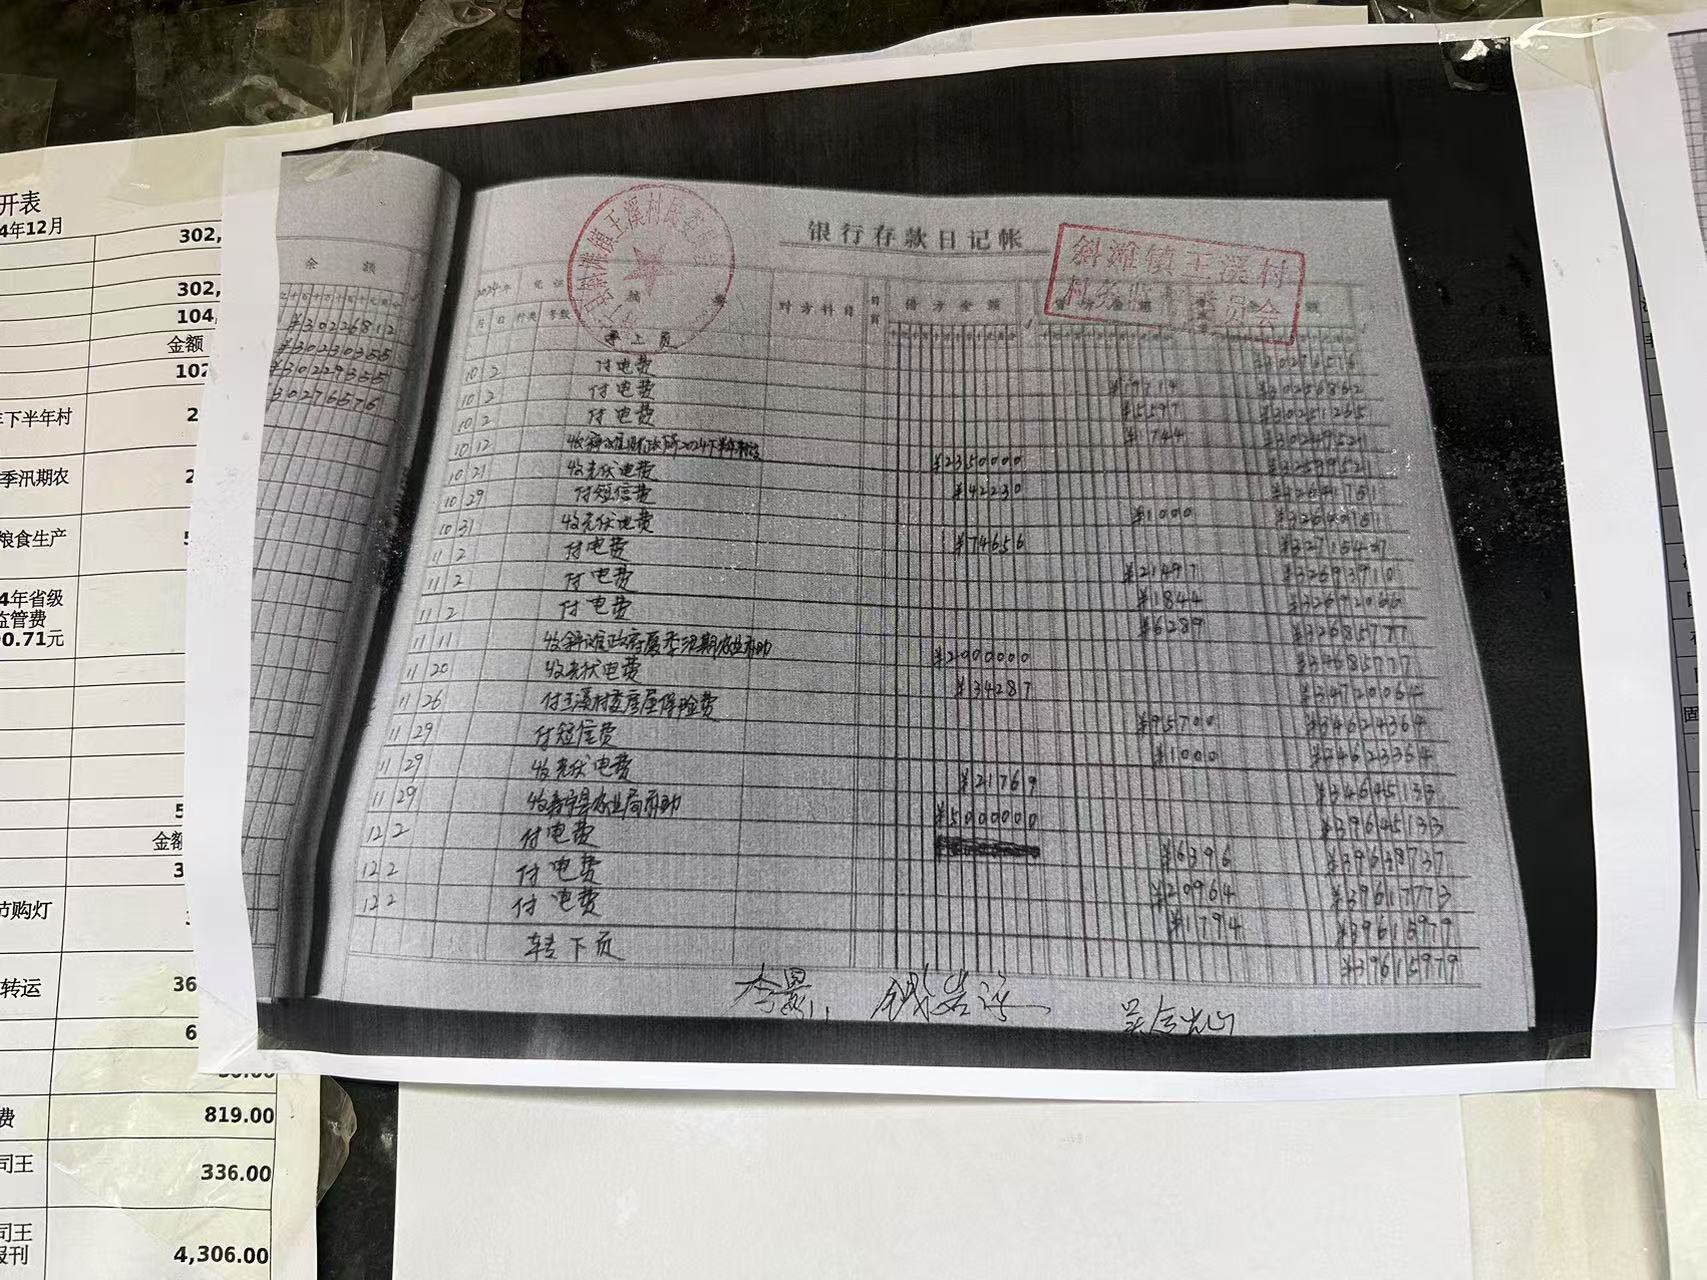 开表
4年12月
302,
302,
104,
金额
102
年下半年村
2
季汛期农
2
粮食生产
5
4年省级
监管费
00.71元
5
金额
3
节购灯
转运
36
6
50.00
费
819.00
司王
336.00
司王
报刊
4,306.00
余 额
¥30226812
¥30230355
¥30229355
¥30276576
银行存款日记帐
斜滩镇王溪村
村务监督委员会
斜滩镇王溪村民委员会
2024年 凭证 摘要 对方科目 借方金额 贷方金额 余额
月 日 种类 号数
承上页 ¥30276576
10 2 付电费 ¥19714 ¥30256862
10 2 付电费 ¥5597 ¥30251265
10 2 付电费 ¥1744 ¥30249521
10 12 ¥2350000 ¥32599521
10 21 收光伏电费 ¥42230 ¥32641751
10 29 付短信费 ¥1000 ¥32640751
10 31 收光伏电费 ¥74656 ¥32715407
11 2 付电费 ¥21497 ¥32693910
11 2 付电费 ¥1844 ¥32692066
11 2 付电费 ¥6289 ¥32685777
11 11 收斜滩政府夏季汛期农业补助 ¥2000000 ¥34685777
11 20 收光伏电费 ¥34287 ¥34720064
11 26 付王溪村委房屋保险费 ¥95700 ¥34624364
11 29 付短信费 ¥1000 ¥34623364
11 29 收光伏电费 ¥21769 ¥34645133
11 29 收寿宁县农业局补助 ¥5000000 ¥39645133
12 2 付电费 ¥6396 ¥39638737
12 2 付电费 ¥20964 ¥39617773
12 2 付电费 ¥1794 ¥39615979
转下页 ¥39615979